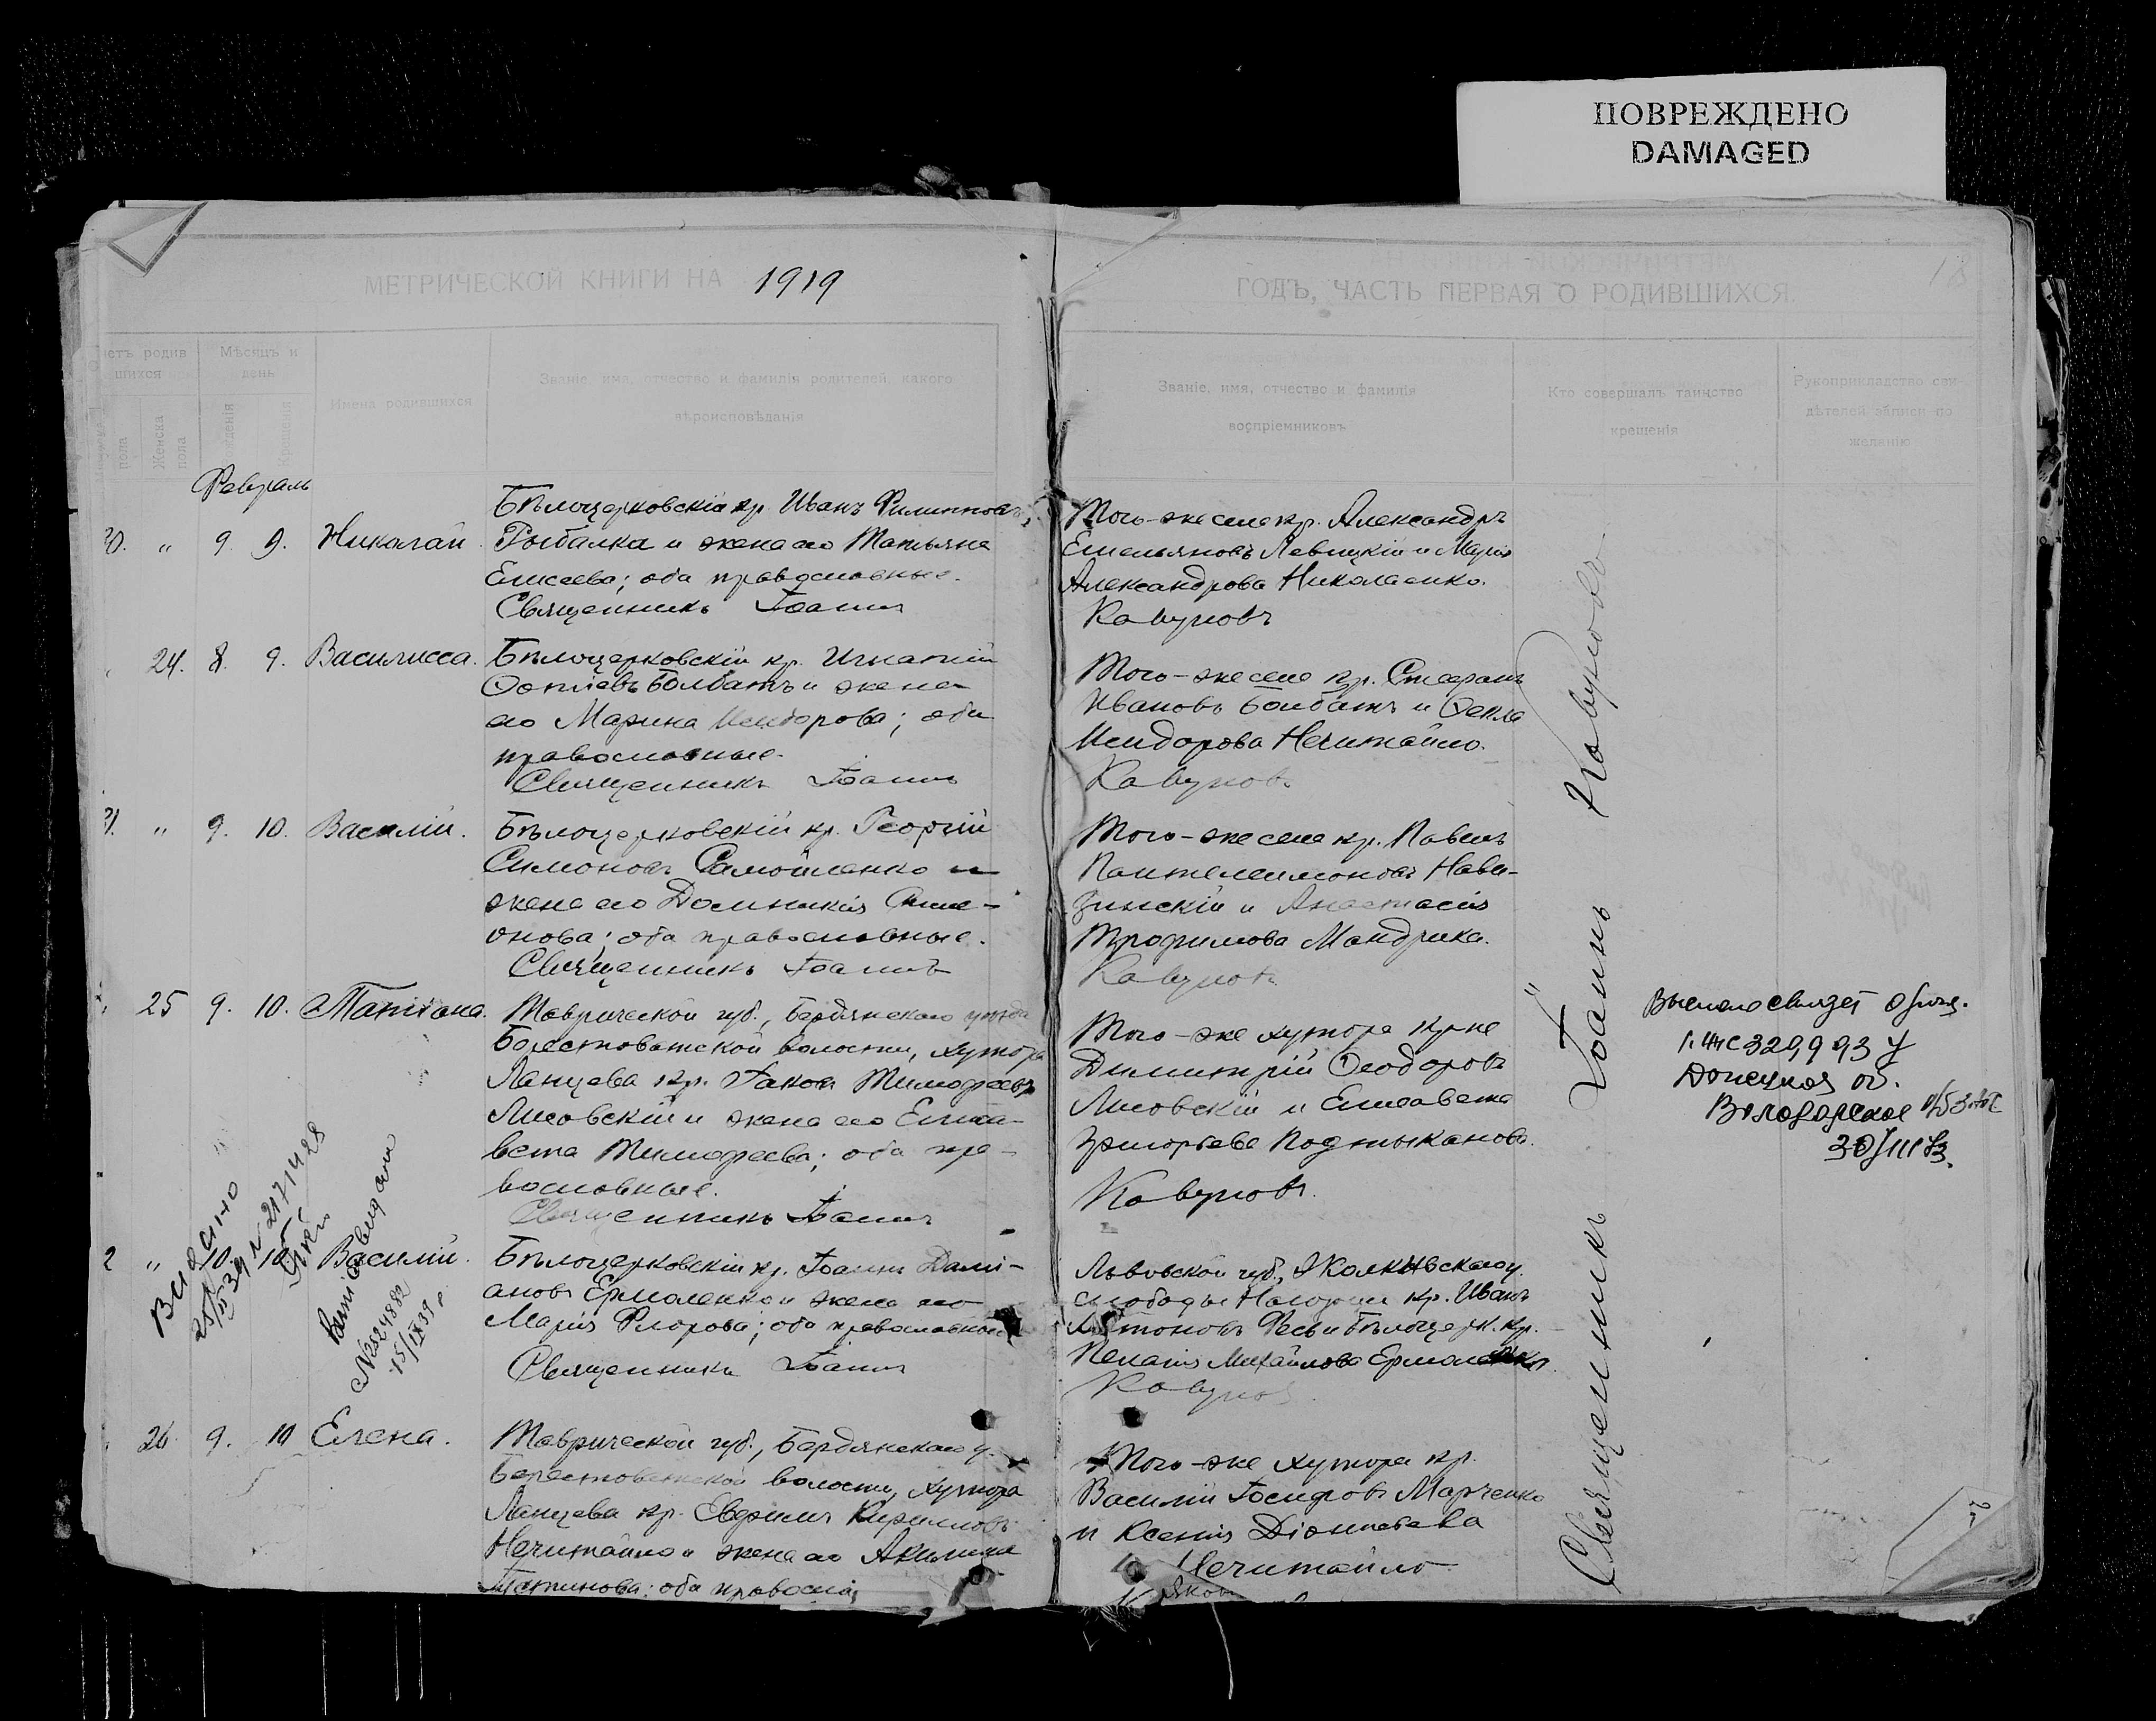 ПОВРЕЖДЕНО
DAMAGED
МЕТРИЧЕСКОЙ КНИГИ НА 1919
ГОДЪ, ЧАСТЬ ПЕРВАЯ О РОДИВШИХСЯ.
етъ родив
шихся
Мѣсяцъ и
день
Имена родившихся
Званіе, имя, отчество и фамилія родителей, какого
вѣроисповѣданія
пола
Женска
пола
рожденія
крещенія
Званіе, имя, отчество и фамилія
воспріемниковъ
Кто совершалъ таинство
крещенія
Рукоприкладство сви-
дѣтелей записи по
желанію
Февраль
0. " 9. 9. Николай.
Бѣлоцерковскій кр. Иванъ Филипповъ
Рыбалка и жена его Татьяна
Елисеева; оба православные.
Священникъ Іоаннъ
Того-же села кр. Александръ
Емельяновъ Левицкій и Марія
Александрова Николаенко.
Кавуновъ
24. 8. 9. Василисса.
Бѣлоцерковскій кр. Игнатій
Фотіевъ Болбатъ и жена
его Марина Исидорова; оба
православные.
Священникъ Іоаннъ
Того-же села кр. Стефанъ
Ивановъ Болбатъ и Ѳекла
Исидорова Нечитайло.
Кавуновъ
1. " 9. 10. Василій.
Бѣлоцерковскій кр. Георгій
Симоновъ Самойленко и
жена его Домникія Симе-
онова; оба православные.
Священникъ Іоаннъ
Того-же села кр. Павелъ
Пантелеимоновъ Нави-
зинскій и Анастасія
Трофимова Мандрика.
Кавуновъ
25 9. 10. Татіана.
Таврической губ., Бердянскаго уѣзда
Берестоватской волости, хутора
Ланцева кр. Іаковъ Тимофеевъ
Лисовскій и жена его Елиса-
вета Тимофеева; оба пра-
вославные.
Священникъ Іоаннъ
Того-же хутора кр-не
Димитрій Ѳеодоровъ
Лисовскій и Елисавета
Григорьева Подтыканова.
Кавуновъ.
329,993
Донецкая
2 " 10. 10. Василій.
Бѣлоцерковскій кр. Іоаннъ Дамі-
ановъ Ермоленко и жена его
Марія Флорова; оба православные
Священникъ Іоаннъ
Львовской губ., Жолкѣвскаго у.
слободы Нагорцы кр. Иванъ
Антоновъ Фесь и Бѣлоцерк. кр.
Пелагія Михайлова Ермоленко.
Кавуновъ
Видано
N 2171428
N 2524882
15/IX 39 г.
26. 9. 10 Елена.
Таврической губ., Бердянскаго у.
Берестоватской волости, хутора
Ланцева кр. Евфимъ Кирилловъ
Нечитайло и жена его Акилина
Устинова; оба правосла
Того-же хутора кр.
Василій Іосифовъ Марченко
и Ксенія Діонисьева
Нечитайло
Священникъ Іоаннъ Кавуновъ